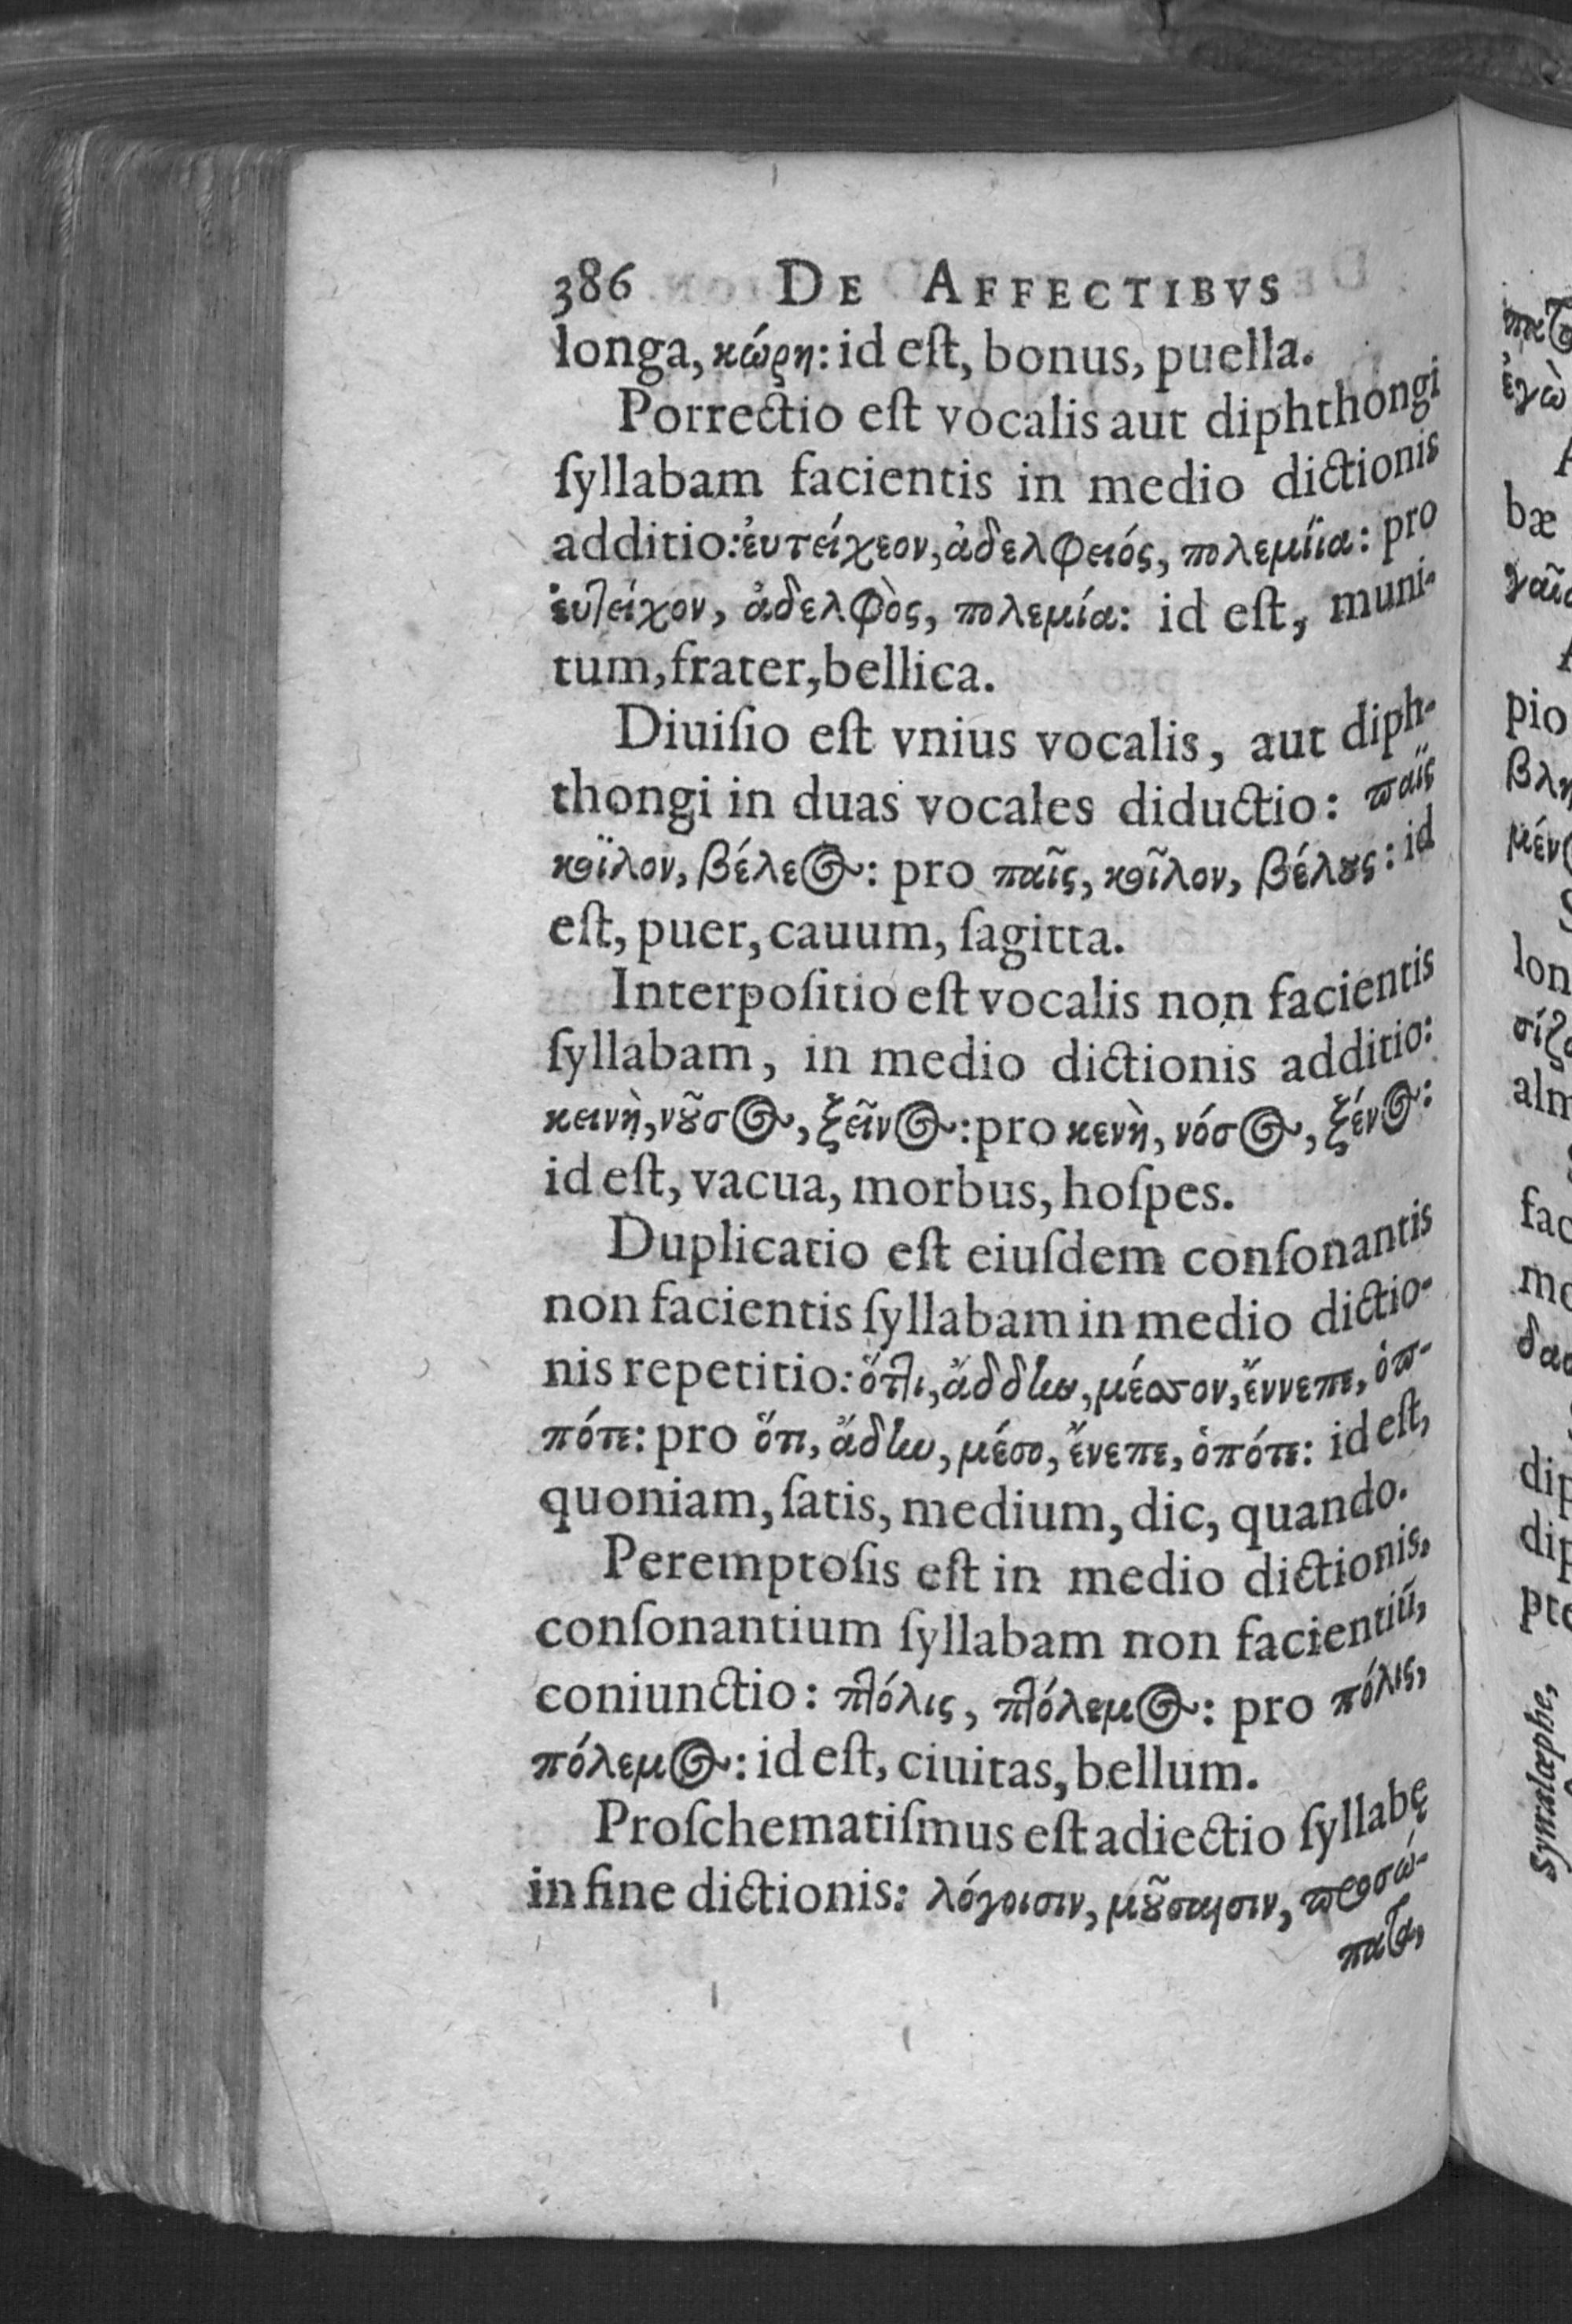 386 DE AFFECTIBVS
longa, κώρη: id eſt, bonus, puella.
Porrectio eſt vocalis aut diphthongi
ſyllabam facientis in medio dictionis
additio: ἐυτείχεον, ἀδελφειός, πολεμίϊα: pro
ἐυτείχον, ἀδελφὸς, πολεμία: id eſt, muni-
tum, frater, bellica.
Diuiſio eſt vnius vocalis, aut diph-
thongi in duas vocales diductio: παϊς
κοϊλον, βέλεος: pro παῖς, κοῖλον, βέλους: id
eſt, puer, cauum, ſagitta.
Interpoſitio eſt vocalis non facientis
ſyllabam, in medio dictionis additio:
κεινὴ, νοῦσος, ξεῖνος: pro κενὴ, νόσος, ξένος:
id eſt, vacua, morbus, hoſpes.
Duplicatio eſt eiuſdem conſonantis
non facientis ſyllabam in medio dictio-
nis repetitio: ὅττι, ἄδδην, μέσσον, ἔννεπε, ὁπ-
πότε: pro ὅτι, ἄδην, μέσο, ἔνεπε, ὁπότε: id eſt,
quoniam, ſatis, medium, dic, quando.
Peremptoſis eſt in medio dictionis,
conſonantium ſyllabam non facientiū,
coniunctio: πτόλις, πτόλεμος: pro πόλις,
πόλεμος: id eſt, ciuitas, bellum.
Proſchematiſmus eſt adiectio ſyllabę
in fine dictionis: λόγοισιν, μούσαισιν, προσώ-
πατα,
Synalæphe,